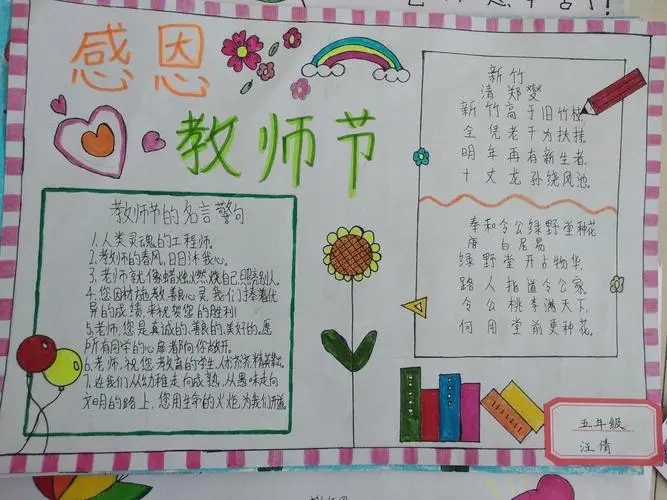 感恩
教师节
教师节的名言警句
1.人类灵魂的工程师。
2.教师的春风,日日沐我心。
3.老师就像蜡烛燃烧自己照亮别人。
4.您因材施教,善良心灵,我们捧着优
异的成绩,来祝贺您的胜利!
5.老师,您是真诚的、善良的、美好的。愿
所有同学的心扉都向你敞开。
6.老师,祝您教育的学生,人才齐齐,精英辈出。
7.在我们从幼稚走向成熟,从愚昧走向
文明的路上,您用生命的火炬,为我们开道。
新竹
清 郑燮
新竹高于旧竹枝
全凭老干为扶持
明年再有新生者,
十丈龙孙绕凤池。
奉和令公绿野堂种花
唐 白居易
绿野堂开占物华,
路人指道令公家。
令公桃李满天下,
何用堂前更种花。
五年级
汪倩